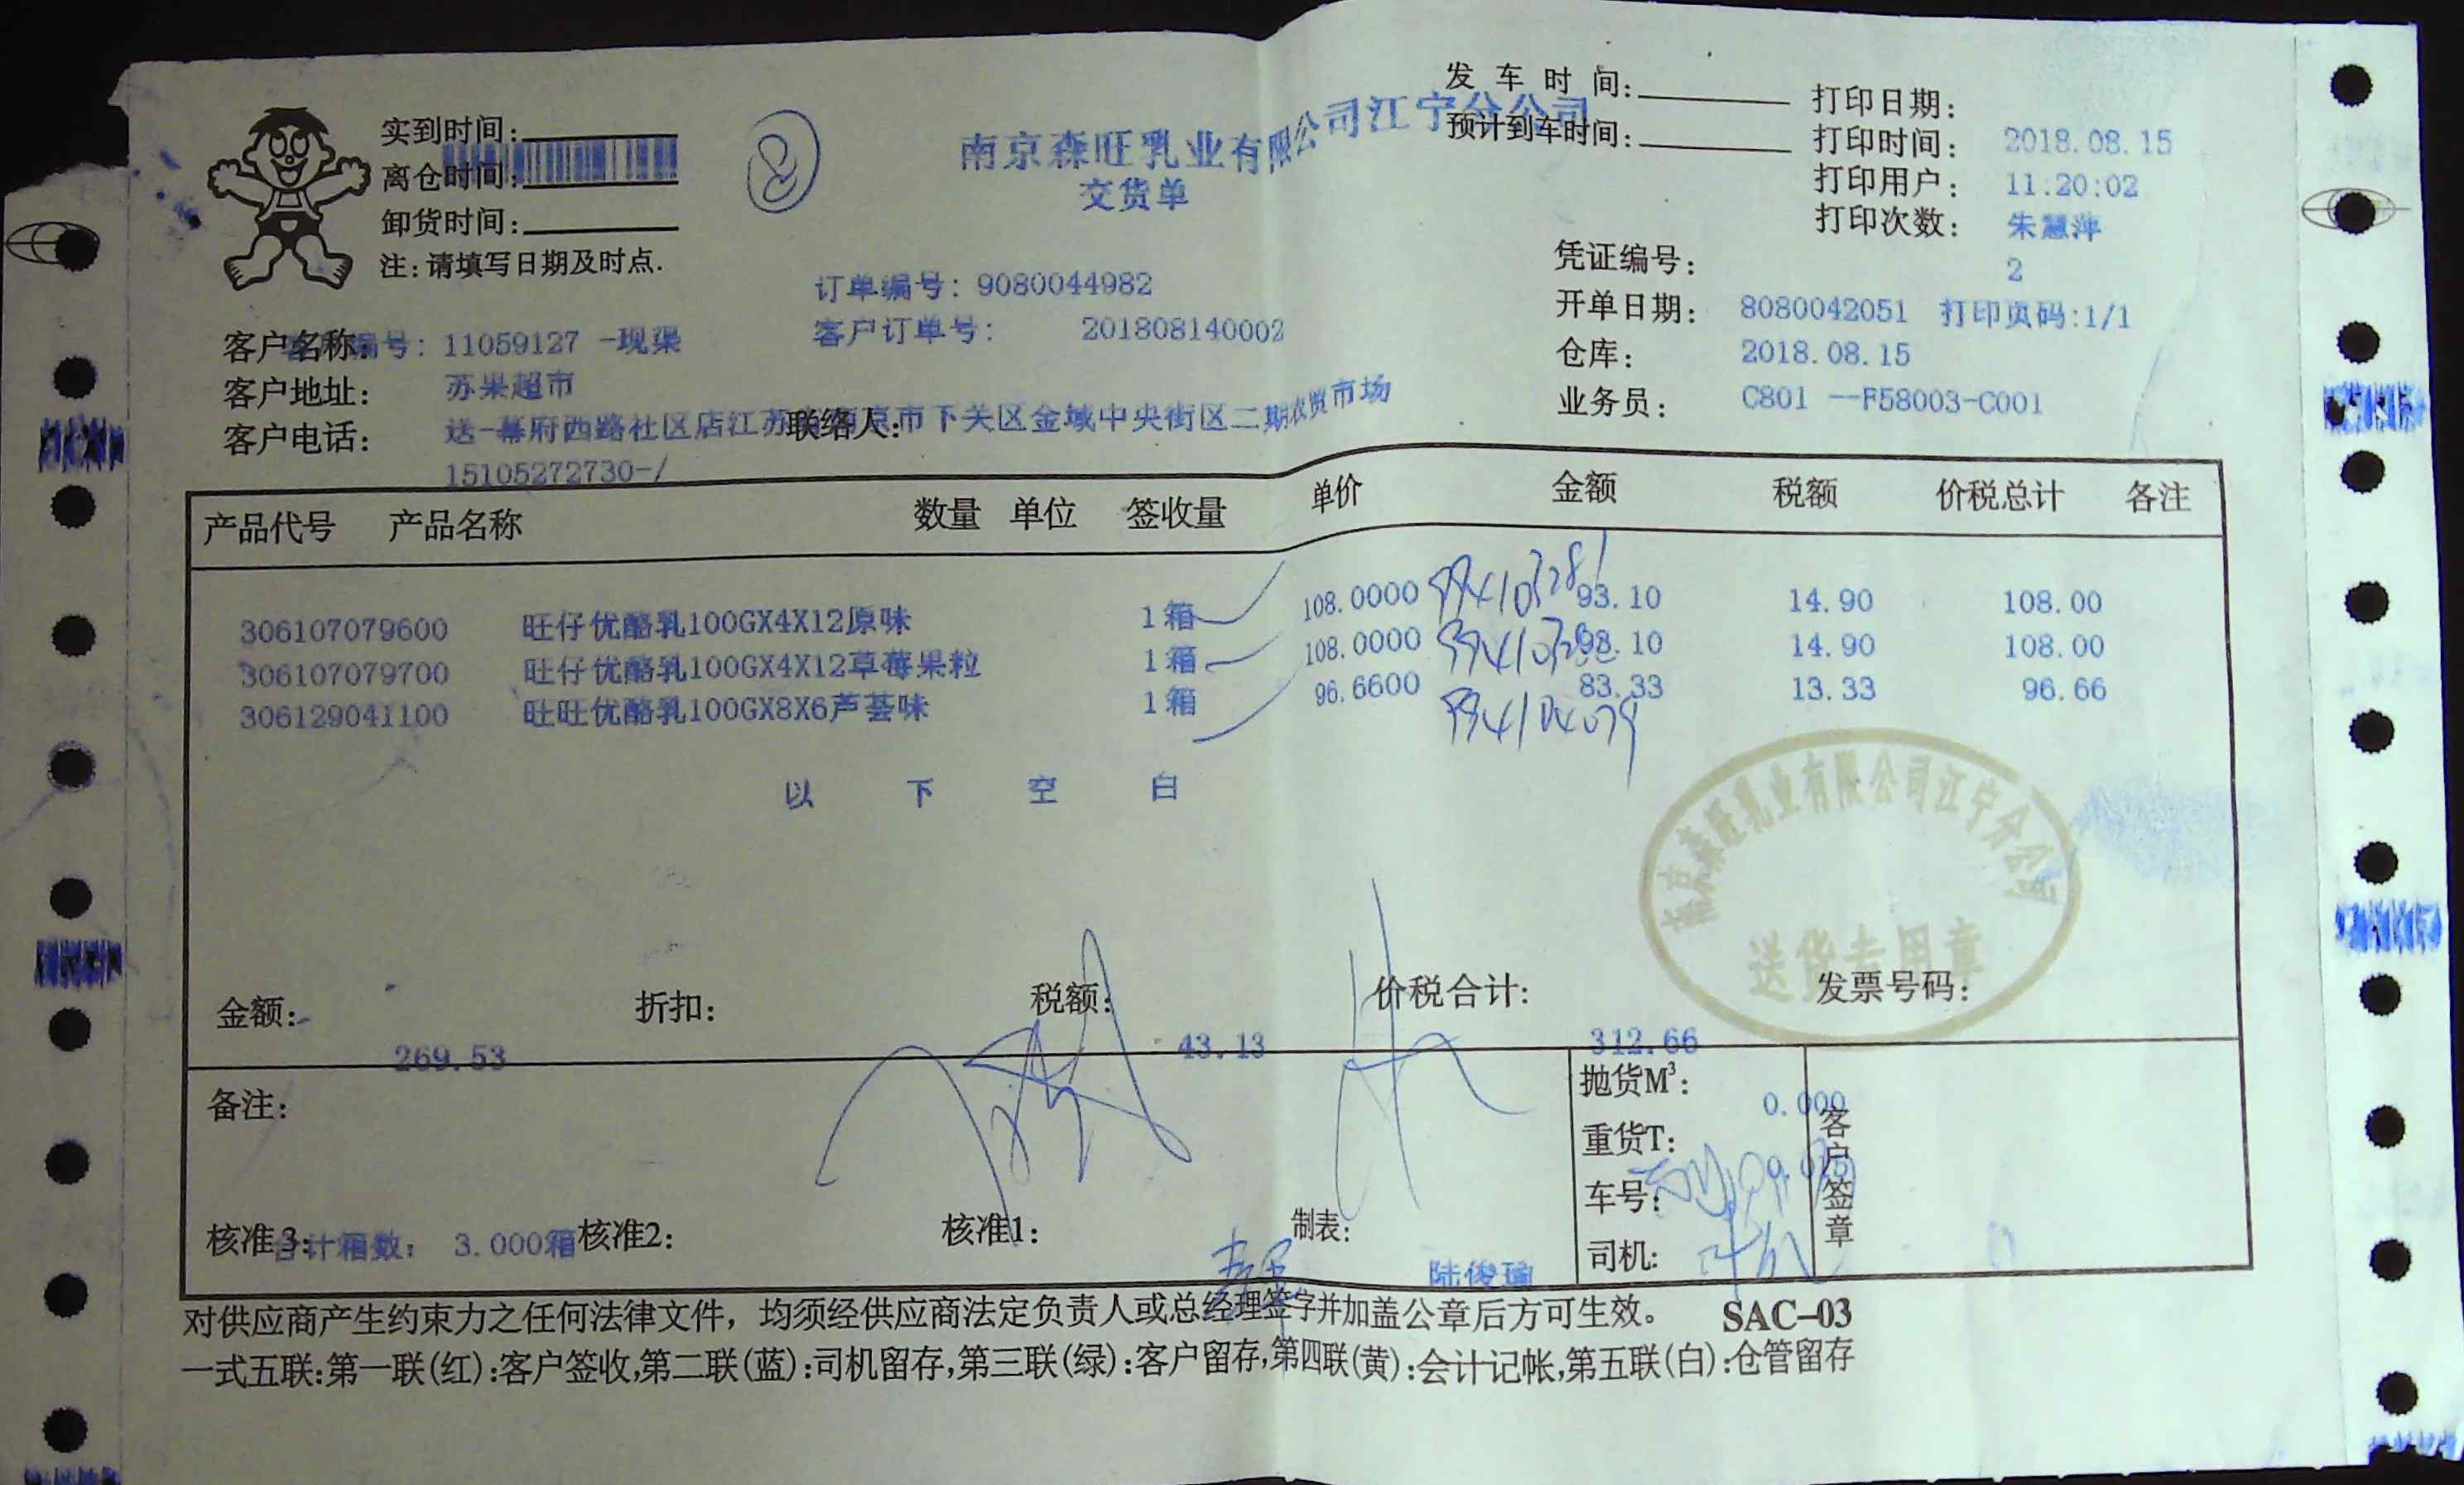 实到时间:
离仓时间:
卸货时间:
注:请填写日期及时点.
南京森旺乳业有限公司江宁分公司
交货单
发车时间:
预计到车时间:
打印日期: 2018.08.15
打印时间: 11:20:02
打印用户: 朱慧萍
打印次数: 2
订单编号: 9080044982
客户订单号: 201808140002
凭证编号: 8080042051 打印页码:1/1
开单日期: 2018.08.15
仓库: C801 --F58003-C001
业务员:
客户名称: 编号: 11059127 -现渠
苏果超市
客户地址: 送-幕府西路社区店江苏 南京市下关区金域中央街区二期农贸市场
客户电话: 15105272730-/
联络人:
产品代号 产品名称 数量 单位 签收量 单价 金额 税额 价税总计 各注
306107079600 旺仔优酪乳100GX4X12原味 1箱 108.0000 93.10 14.90 108.00
306107079700 旺仔优酪乳100GX4X12草莓果粒 1箱 108.0000 93.10 14.90 108.00
306129041100 旺旺优酪乳100GX8X6芦荟味 1箱 96.6600 83.33 13.33 96.66
以下空白
南京森旺乳业有限公司江宁分公司
送货专用章
金额: 269.53 折扣: 税额: 43.13 价税合计: 312.66 发票号码:
备注:
抛货M³: 0.000
重货T:
车号:
司机:
客户签章
核准3: 合计箱数: 3.000箱 核准2: 核准1: 制表: 陆俊瑜
对供应商产生约束力之任何法律文件，均须经供应商法定负责人或总经理签字并加盖公章后方可生效。 SAC-03
一式五联:第一联(红):客户签收,第二联(蓝):司机留存,第三联(绿):客户留存,第四联(黄):会计记帐,第五联(白):仓管留存